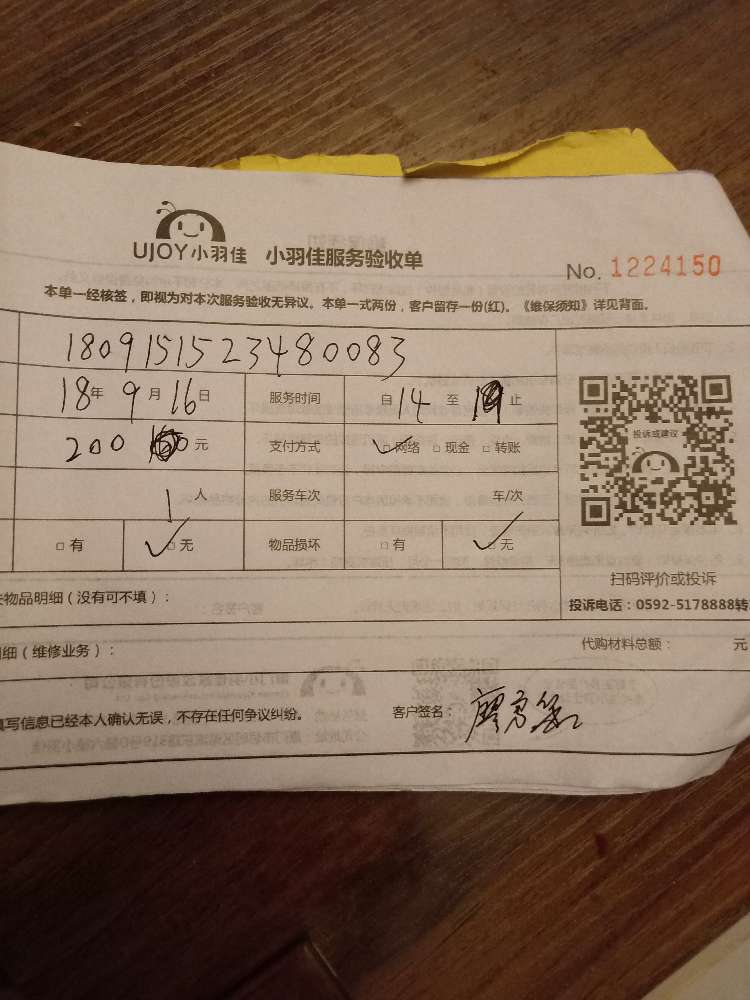 UJOY小羽佳 小羽佳服务验收单
No. 1224150
本单一经核签，即视为对本次服务验收无异议。本单一式两份，客户留存一份(红)。《维保须知》详见背面。
1809151523480083
18年 9月 16日 服务时间 自14 至 止
200 元 支付方式 网络 现金 转账
投诉或建议
1人 服务车次 车/次
有 无 物品损坏 有 无
扫码评价或投诉
物品明细（没有可不填）：
投诉电话：0592-5178888转
细（维修业务）：
代购材料总额： 元
填写信息已经本人确认无误，不存在任何争议纠纷。 客户签名：